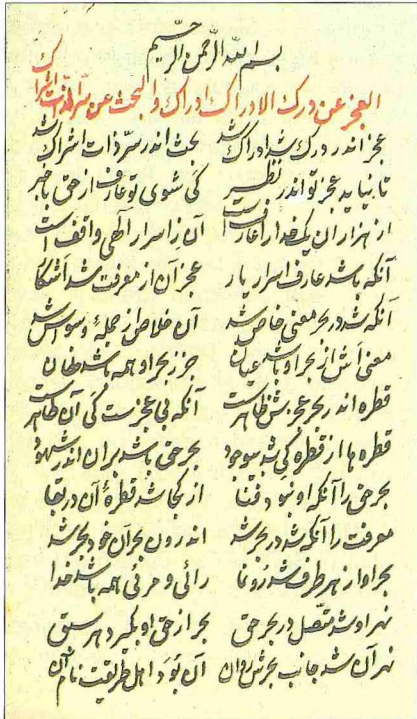 بسم الله الرحمن الرحیم
العجز عن درک الادراک ادراک والبحث عن سرّ الذّات اشراک
عجز اندر درک شد ادراک شد بحث اندر سرّ ذات اشراک شد
تا نیاید عجز تو اندر نظیر کی شوی تو عارف از حق با خبر
از هزاران یک خدا را عارف است آن ز اسرار الهی واقف است
آنکه باشد عارف اسرار یار عجز آن از معرفت شد آشکار
آنکه شد در بحر معنی خاص شد آن خلاص از جملهٔ وسواس شد
معنی اش از بحر او باشد عیان جزر بحر او همه باشد
قطره اند ر بحر عجزش ظاهر است آنکه بی عجز ست کی آن طاهر است
قطره ها از قطره کی شد بوجود بحر حق باشد بر ان اندر شهود
بحر حق را آنکه او نبود فنا از کجا شد قطرهٔ آن در بقا
معرفت را آنکه شد در بحر شد اندرون بحر آن خود بحر شد
بحر او از هر طرف شد رونما رائی و مرئی همه باشد خدا
نهر او شد متّصل در بحر حق بحر از حق او بگیرد هر سبق
نهر آن شد جانب بحرش روان آن بود اهل طریقت نام آن